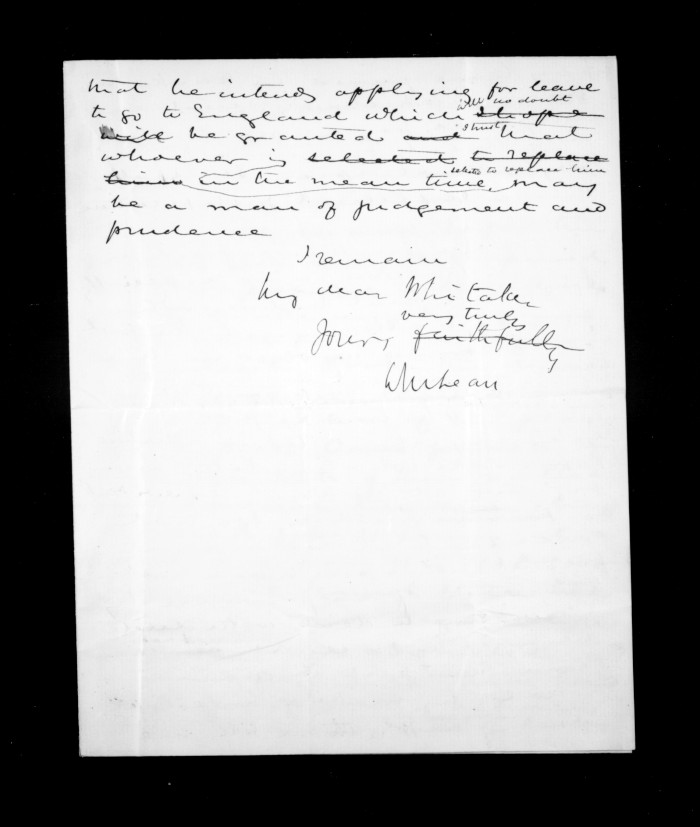 that he intends applying for leave
will no doubt
to go to England which I hope
will be granted and I trust that
whoever is selected to replace
selected to replace him
him in the mean time, may
be a man of judgement and
prudence
I remain
My dear Whitaker
very truly
Yours, faithfully